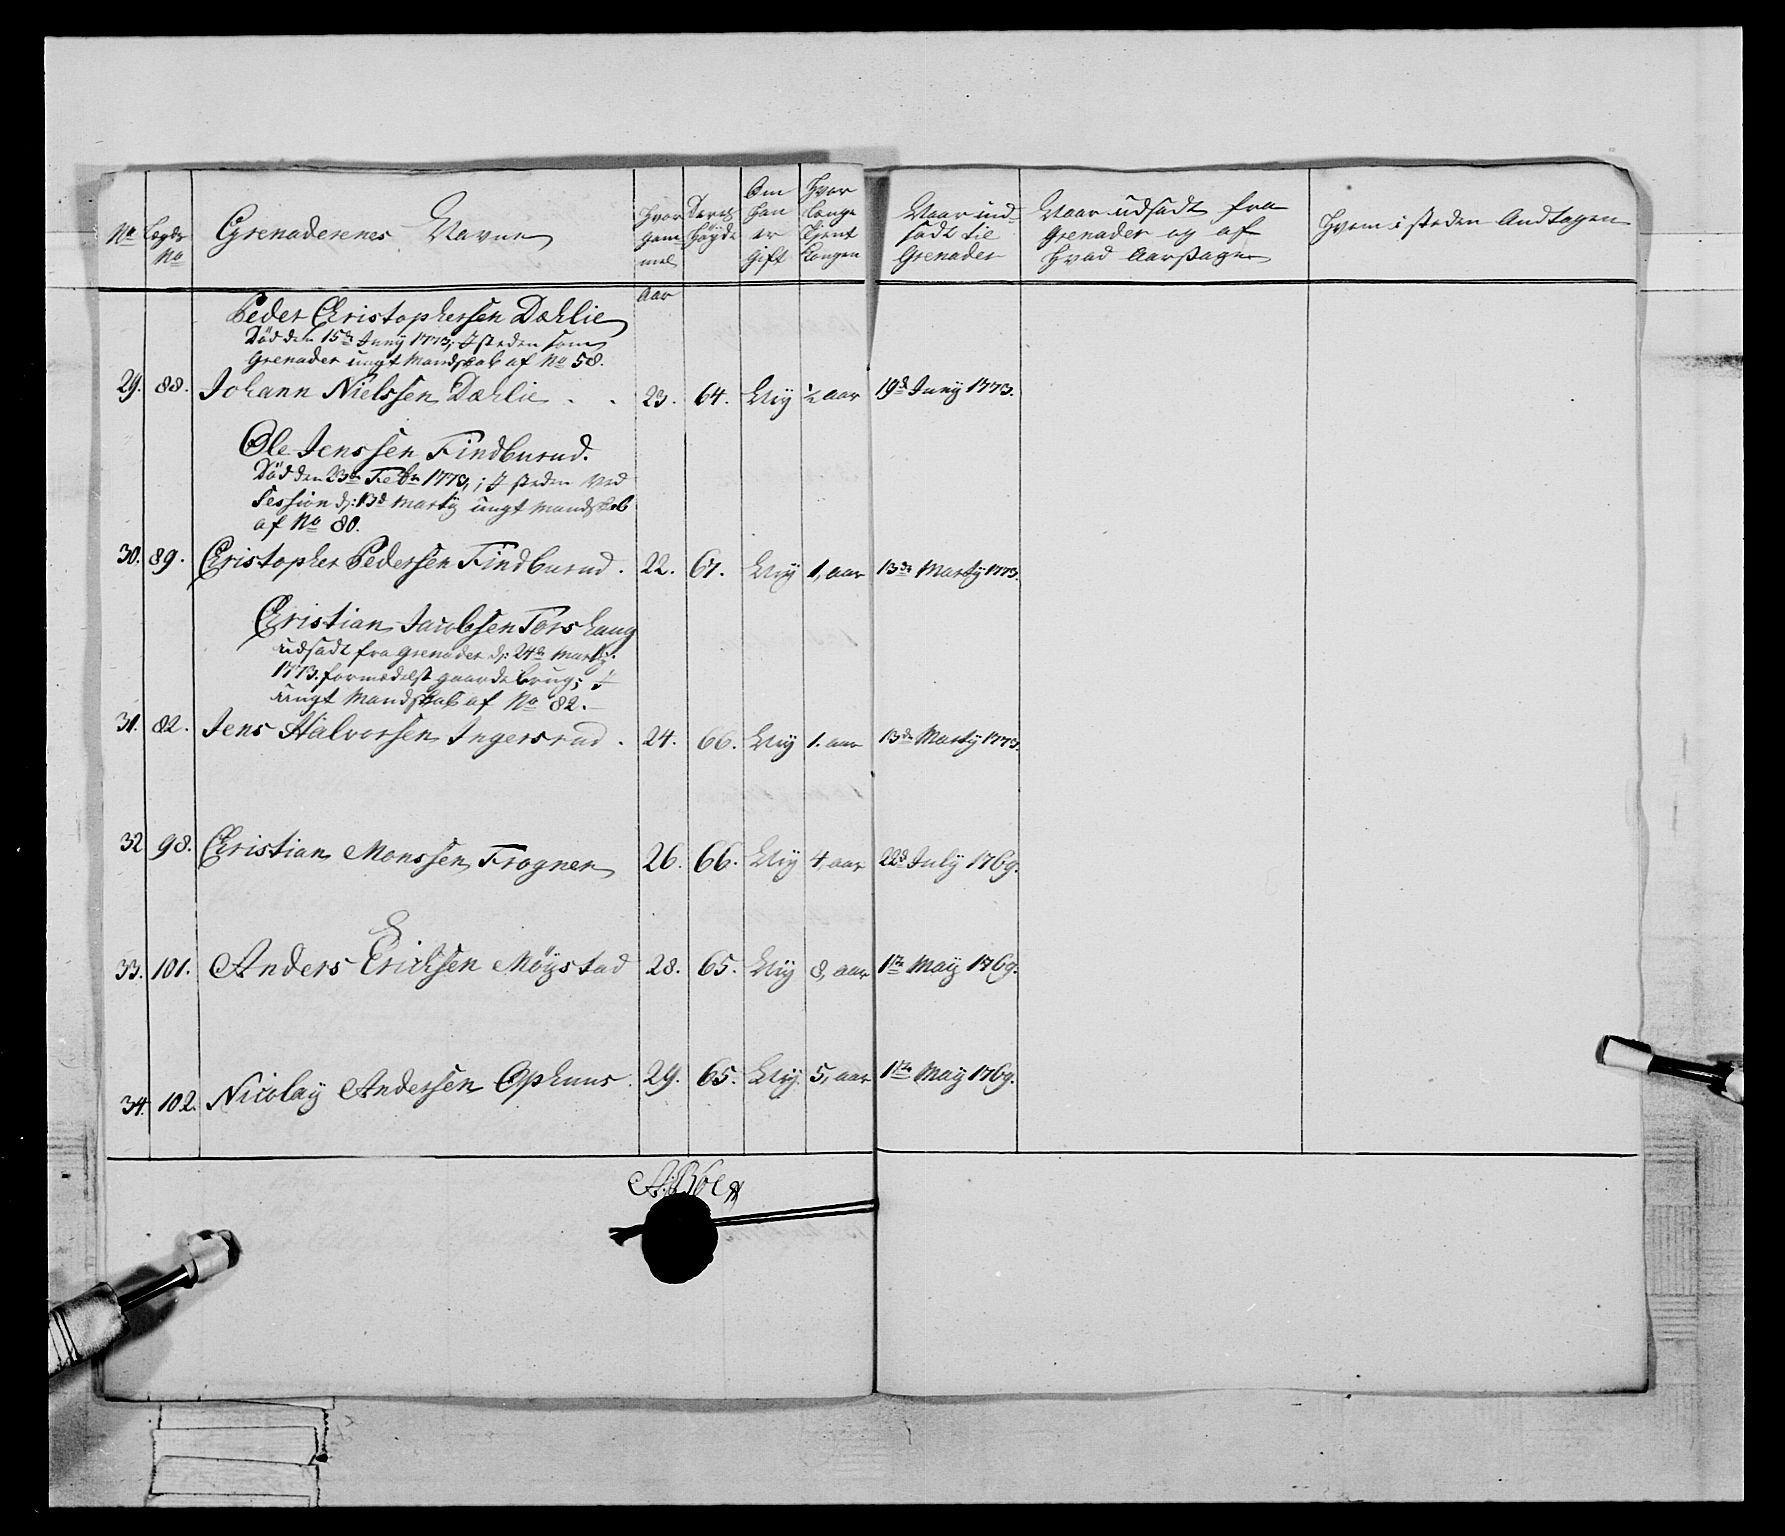 No Lægds No Grenaderenes Navne Hvor gam mel Deres Høyde Om han er Gift Hvor længe tient Kongen Naar ud- sadt til Grenader Naar udsadt fra Grenader og af Hvad Aarsager Hvem i steden Andtagen
Aar
Peder Christophersen Dæhlie
Död den 15de Juny 1773; I steden som
Grenader ungt Mandskab af No 58.
29. 88. Johann Nielssen Dæhlie . . 23. 64. Ney ½ aar 19de Juny 1773.
Ole Jenssen Findburud.
Död den 23de Febr 1773,; I steden ved
Session d: 13de Marty ungt Mandskab
af No 80.
30. 89. Christopher Pedersen Findburud . 22. 67. Ney 1, aar 13de Marty 1773.
Christian Jacobsen Torshaug
udsadt fra Grenader d: 24de Marty
1773. formedelst gaardebrug; I
ungt Mandskab af No 82.
31. 82. Jens Halvorsen Ingersrud . 24. 66. Ney 1. aar 13de Marty 1773.
32 98. Christian Monssen Frogner 26. 66. Ney 4, aar 22de July 1769.
33. 101. Anders Erichsen Möystad 28. 65. Ney 8, aar 1te May 1769.
34. 102. Nicolay Anderssen Ophuus . 29. 65. Ney. 5, aar 1te May 1769.